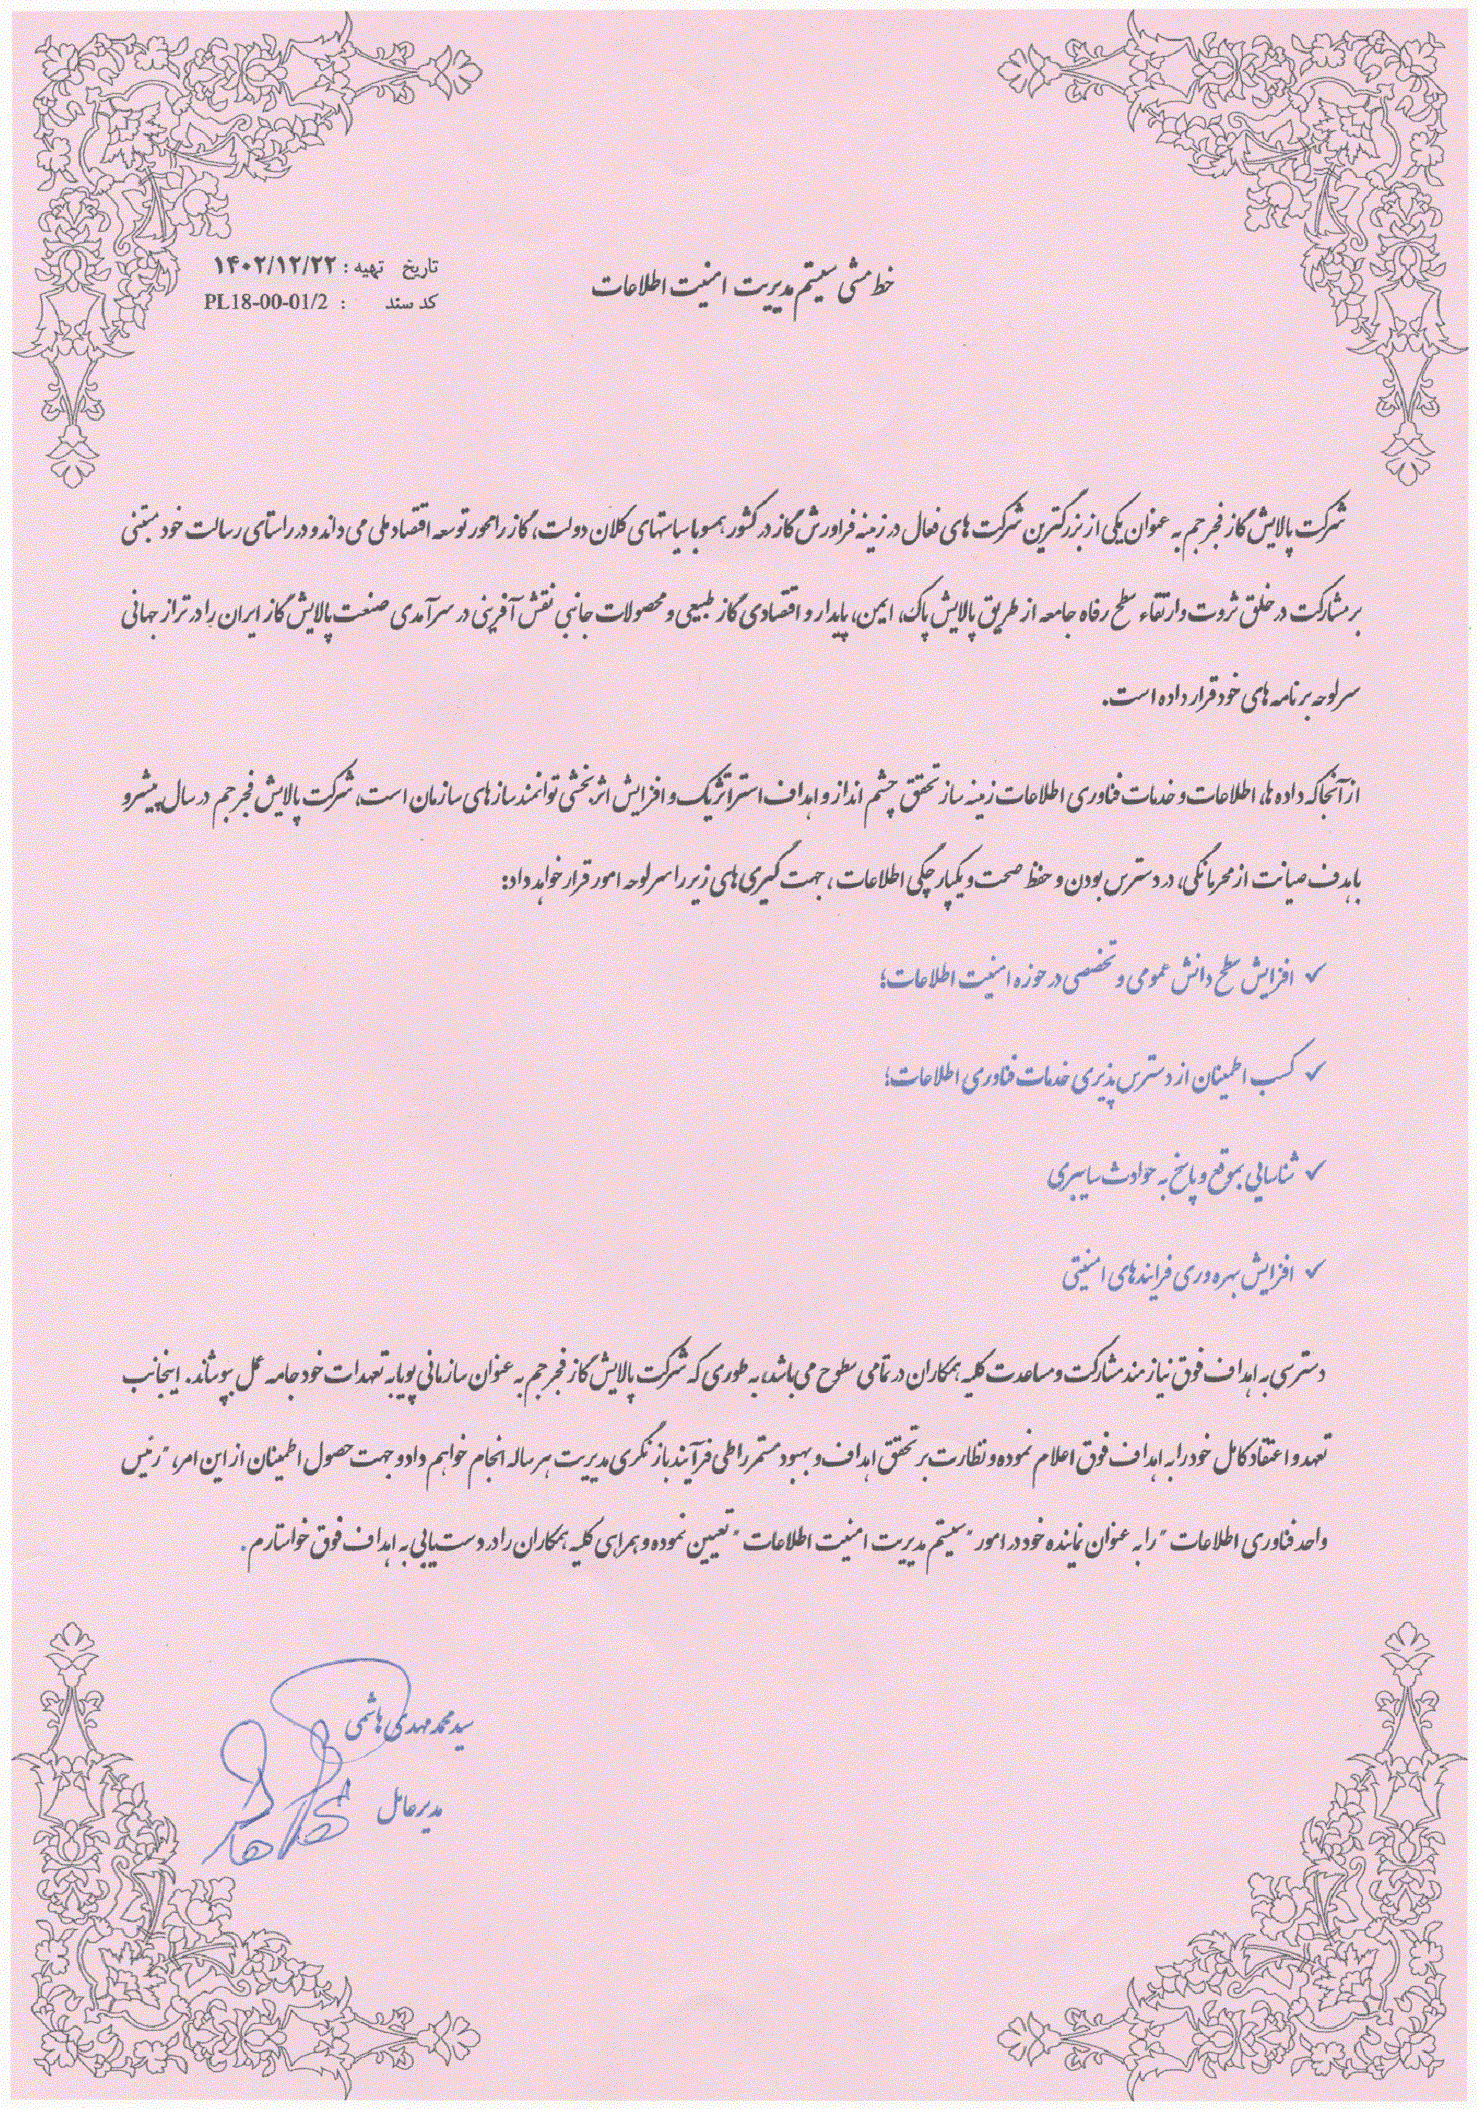 تاریخ تهیه : ۱۴۰۲/۱۲/۲۲
خط مشی سیستم مدیریت امنیت اطلاعات
کد سند : PL18-00-01/2
شرکت پالایش گاز فجر جم به عنوان یکی از بزرگترین شرکت های فعال در زمینه فراورش گاز در کشور همسو با سیاستهای کلان دولت، گاز را محور توسعه اقتصاد ملی می داند و در راستای رسالت خود مبتنی
بر مشارکت در خلق ثروت و ارتقاء سطح رفاه جامعه از طریق پالایش پاک، ایمن، پایدار و اقتصادی گاز طبیعی و محصولات جانبی نقش آفرینی در سرآمدی صنعت پالایش گاز ایران را در تراز جهانی
سرلوحه برنامه های خود قرار داده است.
از آنجا که داده ها، اطلاعات و خدمات فناوری اطلاعات زمینه ساز تحقق چشم انداز و اهداف استراتژیک و افزایش اثربخشی توانمندسازهای سازمان است، شرکت پالایش فجر جم در سال پیشرو
با هدف صیانت از محرمانگی، در دسترس بودن و حفظ صحت و یکپارچگی اطلاعات ، جهت گیری های زیر را سرلوحه امور قرار خواهد داد:
✓ افزایش سطح دانش عمومی و تخصصی در حوزه امنیت اطلاعات؛
✓ کسب اطمینان از دسترس پذیری خدمات فناوری اطلاعات؛
✓ شناسایی بموقع و پاسخ به حوادث سایبری
✓ افزایش بهره وری فرایندهای امنیتی
دسترسی به اهداف فوق نیازمند مشارکت و مساعدت کلیه همکاران در تمامی سطوح می باشد، به طوری که شرکت پالایش گاز فجر جم به عنوان سازمانی پویا به تعهدات خود جامه عمل بپوشاند. اینجانب
تعهد و اعتقاد کامل خود را به اهداف فوق اعلام نموده و نظارت بر تحقق اهداف و بهبود مستمر را طی فرآیند بازنگری مدیریت هر ساله انجام خواهم داد و جهت حصول اطمینان از این امر، "رئیس
واحد فناوری اطلاعات " را به عنوان نماینده خود در امور "سیستم مدیریت امنیت اطلاعات " تعیین نموده و همراهی کلیه همکاران را در دست یابی به اهداف فوق خواستارم.
سید محمد مهدی هاشمی
مدیرعامل